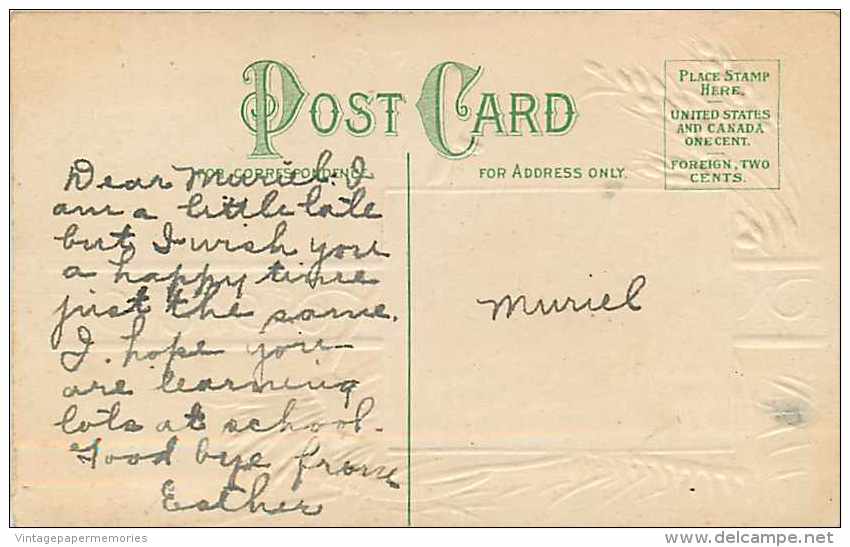 POST CARD
FOR CORRESPONDENCE.
FOR ADDRESS ONLY.
PLACE STAMP
HERE.
UNITED STATES
AND CANADA
ONE CENT.
FOREIGN, TWO
CENTS.
Dear Muriel. I
am a little late
but I wish you
a happy time
just the same.
I hope you
are learning
lots at school.
Good bye from
Esther
Muriel
Vintagepapermemories
delcampe.net